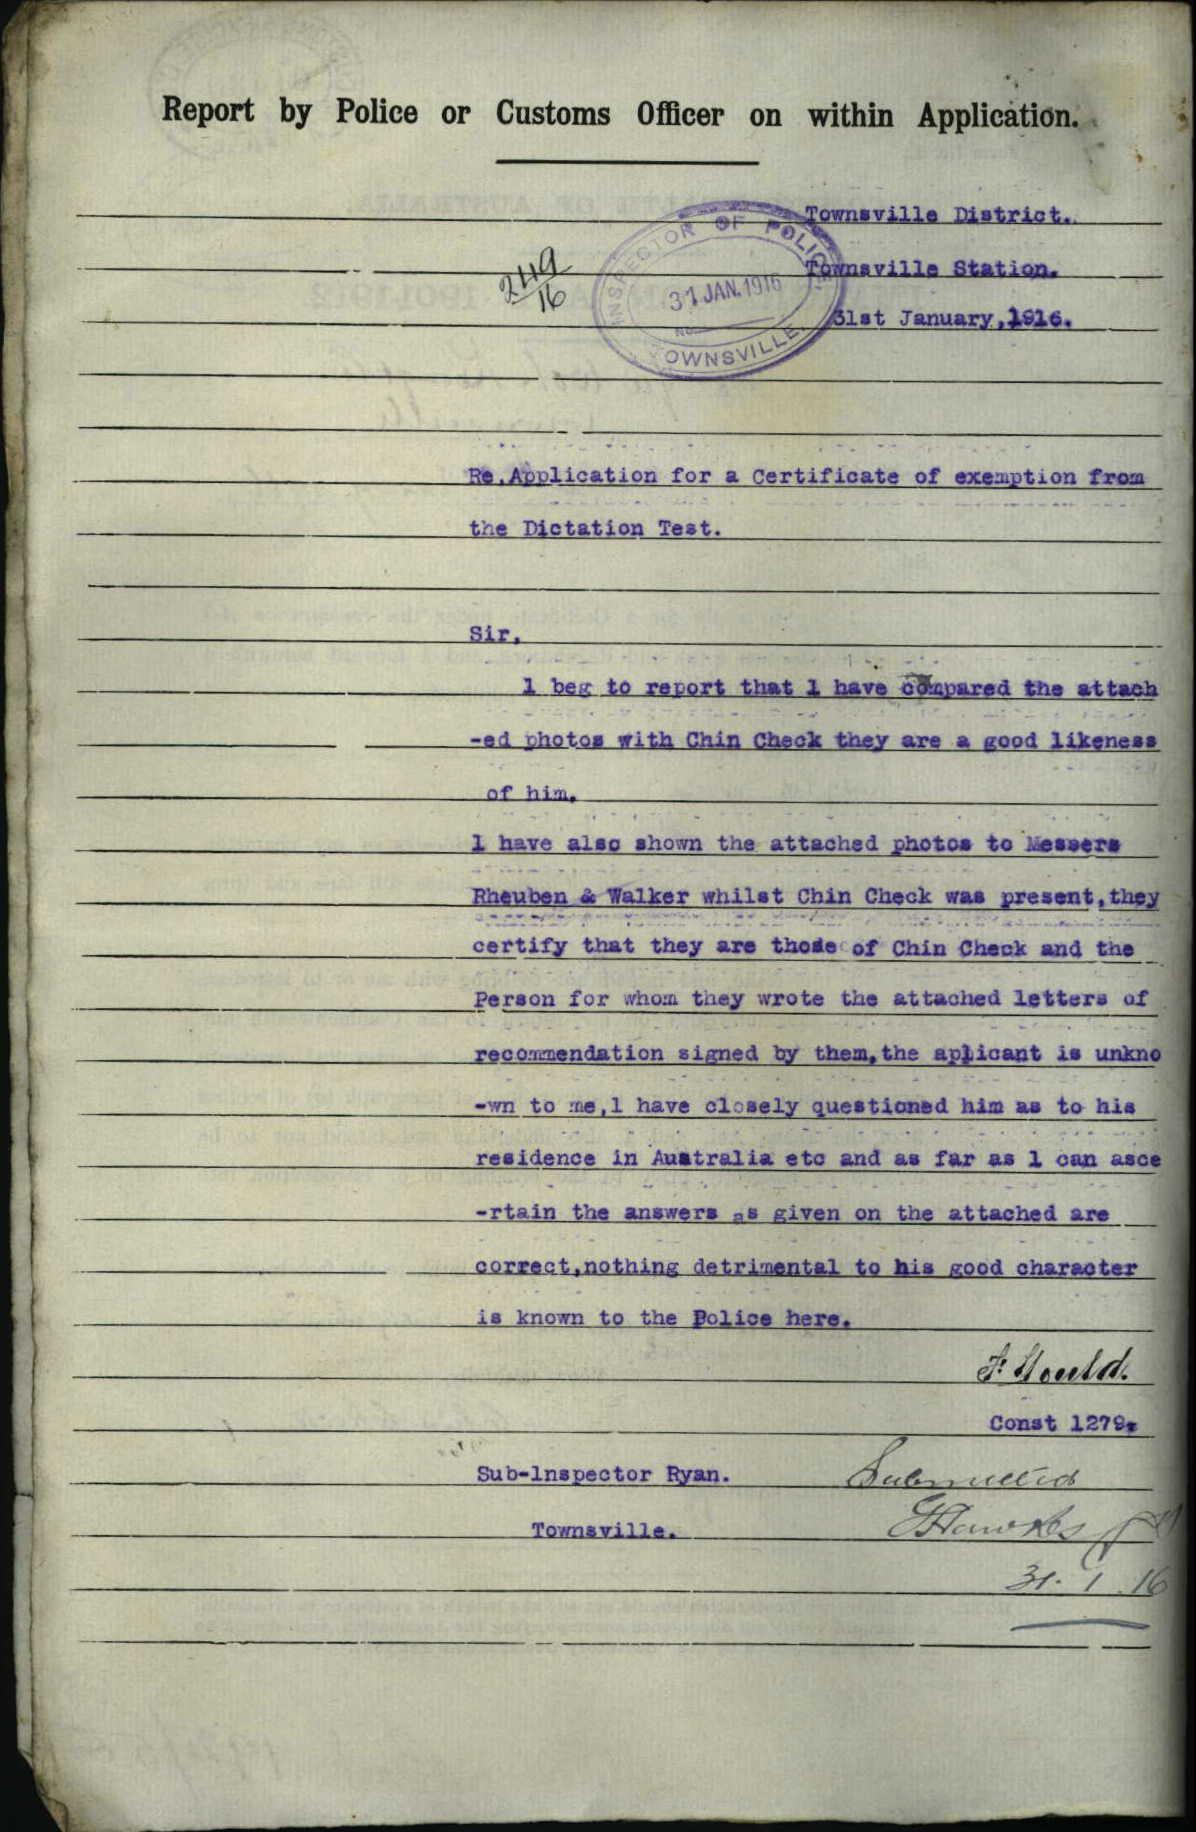 Report by Police or Customs Officer on within Application.
Townsville District.
Townsville Station.
31st January, 1916.
INSPECTOR OF POLICE
31 JAN. 1916
No.
TOWNSVILLE.
2419
16
Re.Application for a Certificate of exemption from
the Dictation Test.
Sir,
l beg to report that l have compared the attach
-ed photos with Chin Check they are a good likeness
of him.
l have also shown the attached photos to Messers
Rheuben & Walker whilst Chin Check was present,they
certify that they are those of Chin Check and the
Person for whom they wrote the attached letters of
recommendation signed by them,the aplicant is unkno
-wn to me,l have closely questioned him as to his
residence in Australia etc and as far as l can asce
-rtain the answers as given on the attached are
correct,nothing detrimental to his good character
is known to the Police here.
Const 1279.
Sub-lnspector Ryan.
Submitted
Townsville.
31.1.16